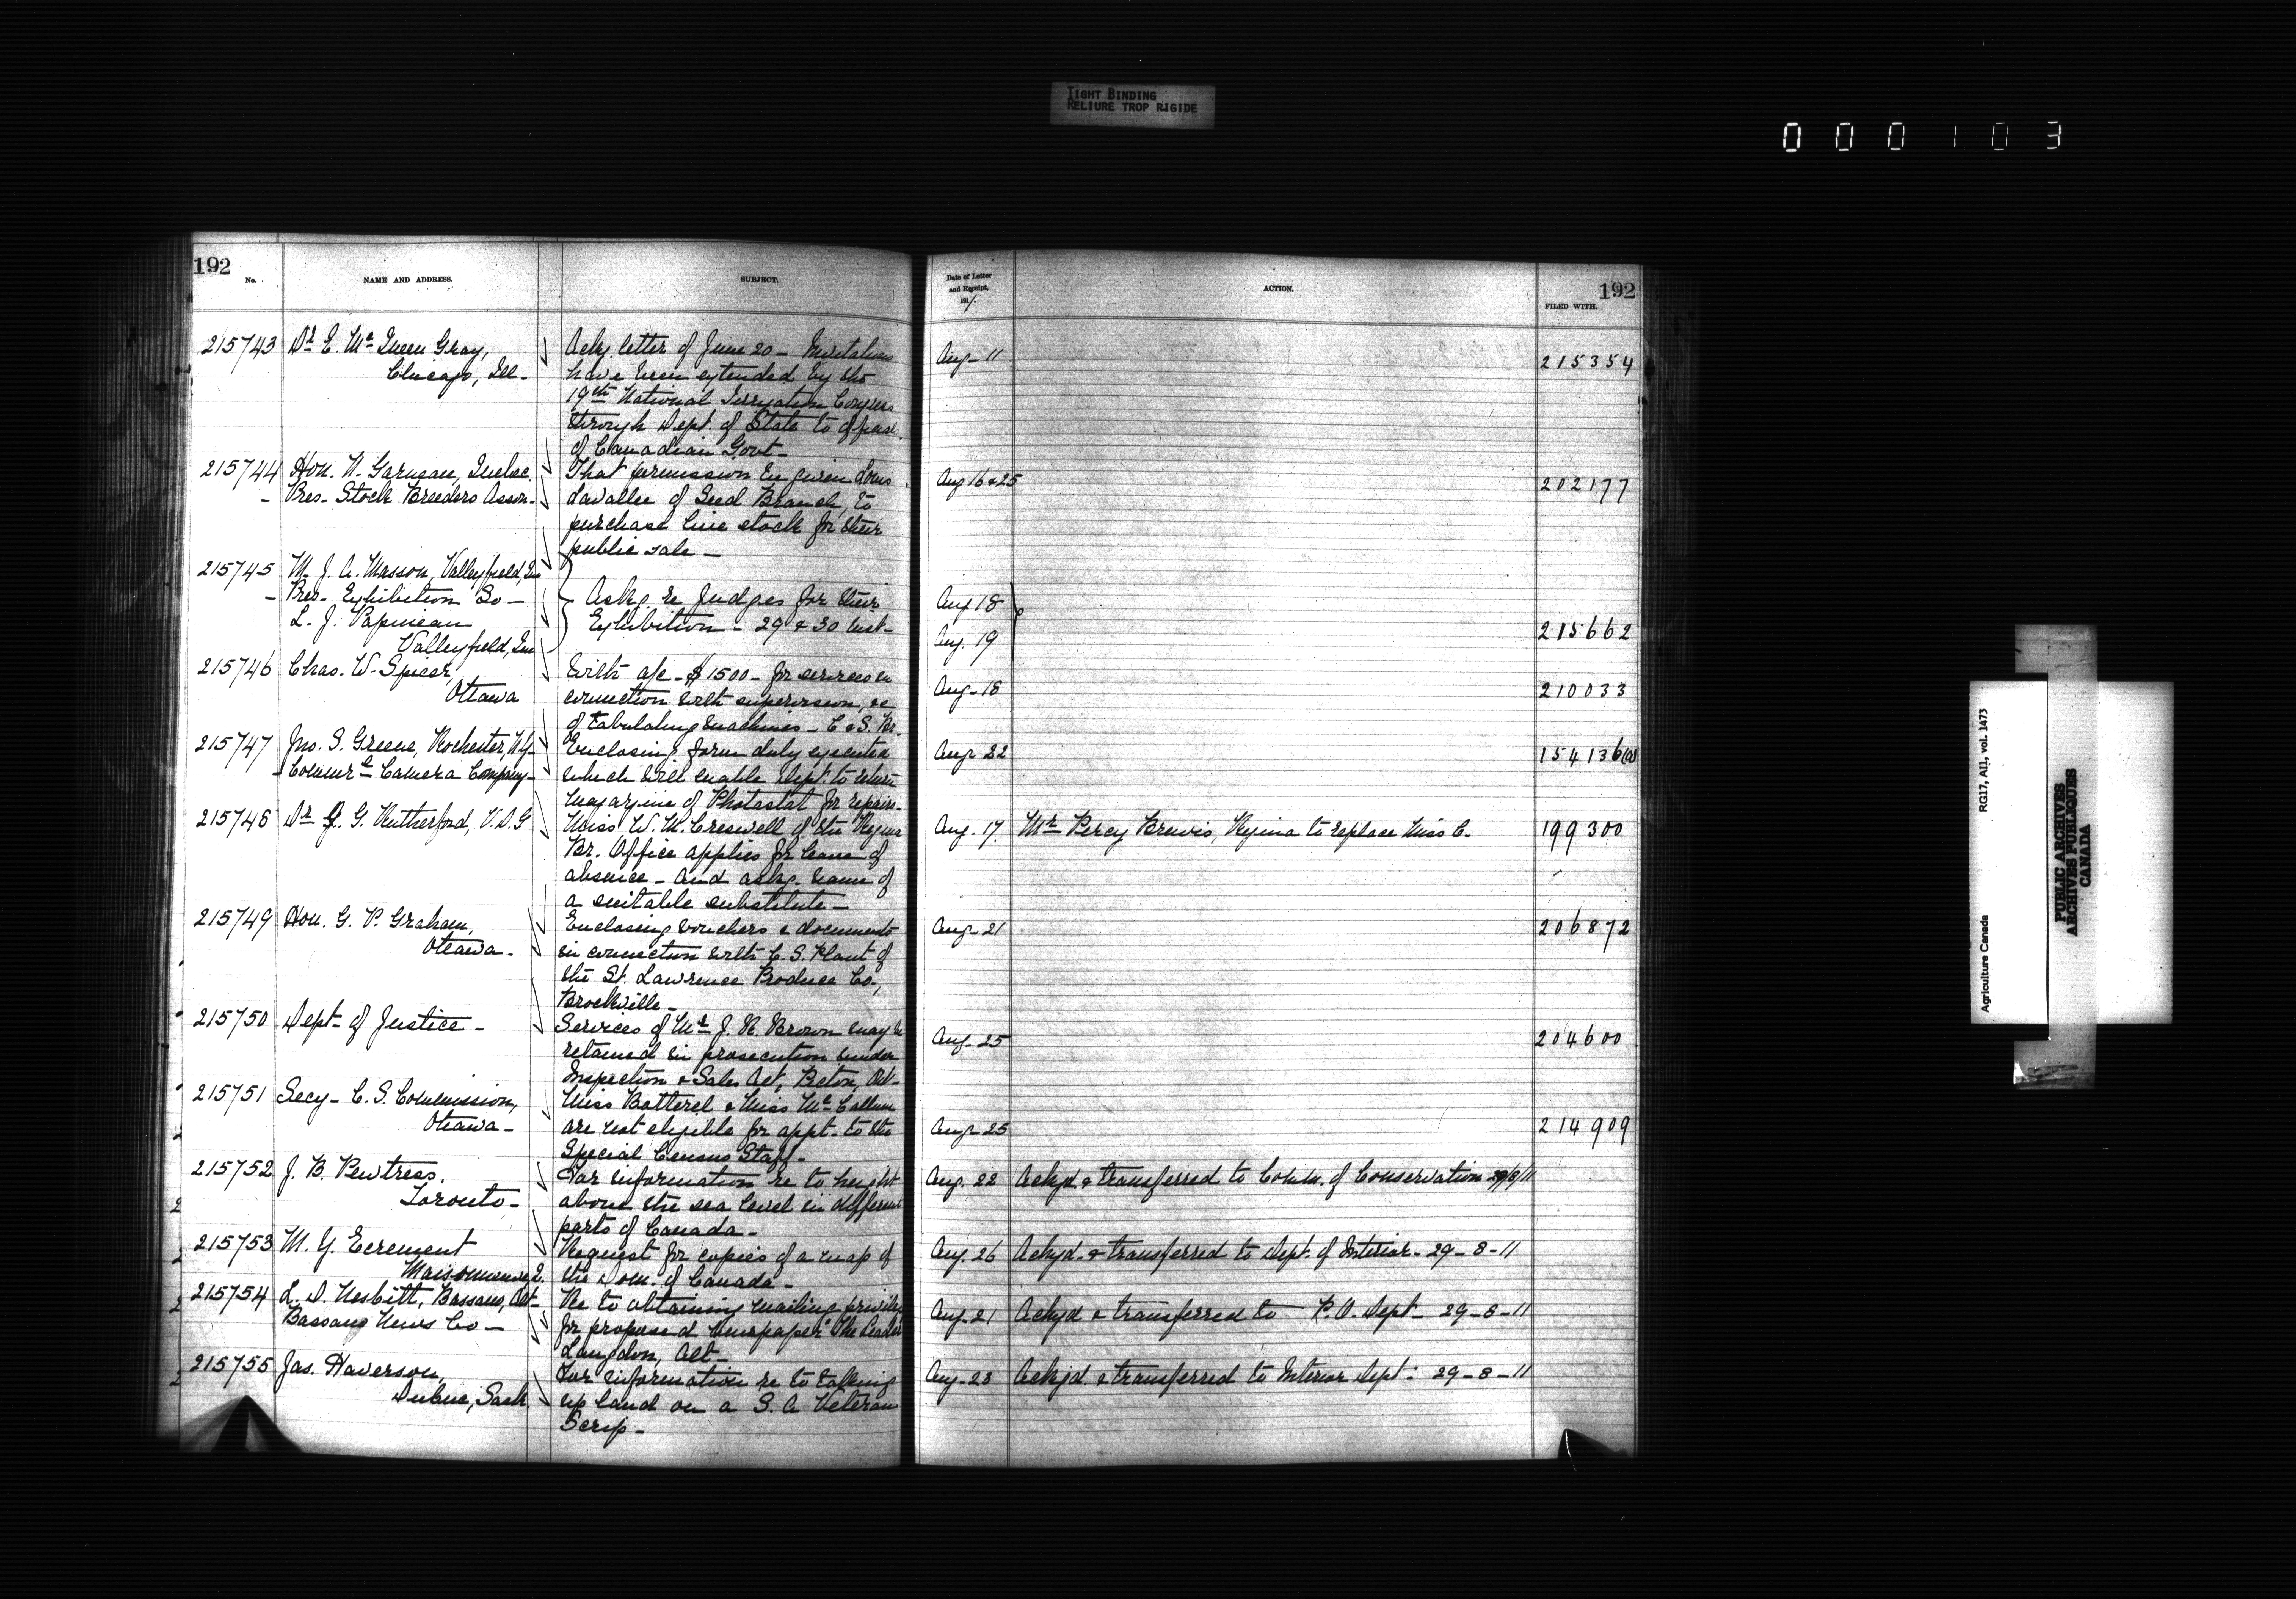 TIGHT BINDING
RELIURE TROP RIGIDE
000103
192
No.
NAME AND ADDRESS.
SUBJECT.
215743 Dr E. Mc Queen Gray,
Chicago, Ill-
Ackg. letter of June 20 - Invitations
have been extended by the
19th National Irrigation Congress
through Dept. of State to
of Canadian Govt-
215744 Hon. N. Garneau, Quebec.
- Pres- Stock Breeders Asson-
That permission be given Louis
Lavallee of Seed Branch, to
purchase live stock for their
public sale -
215745 M. J. A. Masson, Valleyfield, Que
- Pres- Exhibition So -
L. J. Papineau
Valleyfield, Que
Askg. re Judges for their
Exhibition - 29 & 30 Inst-
215746 Chas. W. Spicer,
Ottawa
With a/c - $1500 - for services in
connection with supervision, &c
of tabulating machines - C & S. Br.
215747 Jno. S. Greene, Rochester, N.Y-
- Commerl Camera Company-
Enclosing form duly executed
which will enable Dept. to return
magazine of Photostat for repairs-
215748 Dr J. G. Rutherford, V.D.G
Miss W. M. Creswell of the Regina
Br. Office applies for leave of
absence - and askg. name of
a suitable substitute -
215749 Hon. G. P. Graham,
Ottawa -
Enclosing vouchers & documents
in connection with C. S. Plant of
the St. Lawrence Produce Co.,
Brockville -
215750 Dept- of Justice -
Services of Mr J. R. Brown may be
retained in prosecution under
Inspection & Sales Act, Picton, Ont-
215751 Secy - C. S. Commission,
Ottawa -
Miss Botterel & Miss Mc Callum
are not eligible for appt- to the
Special Census Staff -
215752 J. B. Pewtress.
Toronto -
For information re to height
above the sea level in different
parts of Canada -
215753 M. Y. Ecrement
Maisonneuve, Q.
Request for copies of a map of
the Dom. of Canada -
215754 L. D. Nesbitt, Bassano, Alt-
Bassano News Co -
Re to obtaining mailing privileges
for proposed Newspaper "The Leader
Langdon, Alt-
215755 Jas. Haverson,
Dubuc, Sask.
For information re to taking
up land on a S. A Veteran
Scrip -
Date of Letter
and Receipt,
1911.
ACTION.
FILED WITH.
192
Aug- 11 215354
Aug 16 & 25 202177
Aug 18
Aug. 19 215662
Aug- 18 210033
Aug- 22 154136(a)
Aug. 17. Mr Percy Brewis, Regina to replace Miss C. 199300
Aug- 21 206872
Aug- 25 204600
Aug- 25 214909
Aug. 22 Ackyd & transferred to Comm. of Conservation 29/8/11
Aug. 26 Ackyd. & transferred to Dept. of Interior - 29 - 8 - 11
Aug- 21 Ackyd & transferred to P. O. Dept - 29 - 8 - 11
Aug- 23 Ackyd. & transferred to Interior Dept - 29 - 8 - 11
Agriculture Canada
RG17, AII, vol. 1473
PUBLIC ARCHIVES
ARCHIVES PUBLIQUES
CANADA